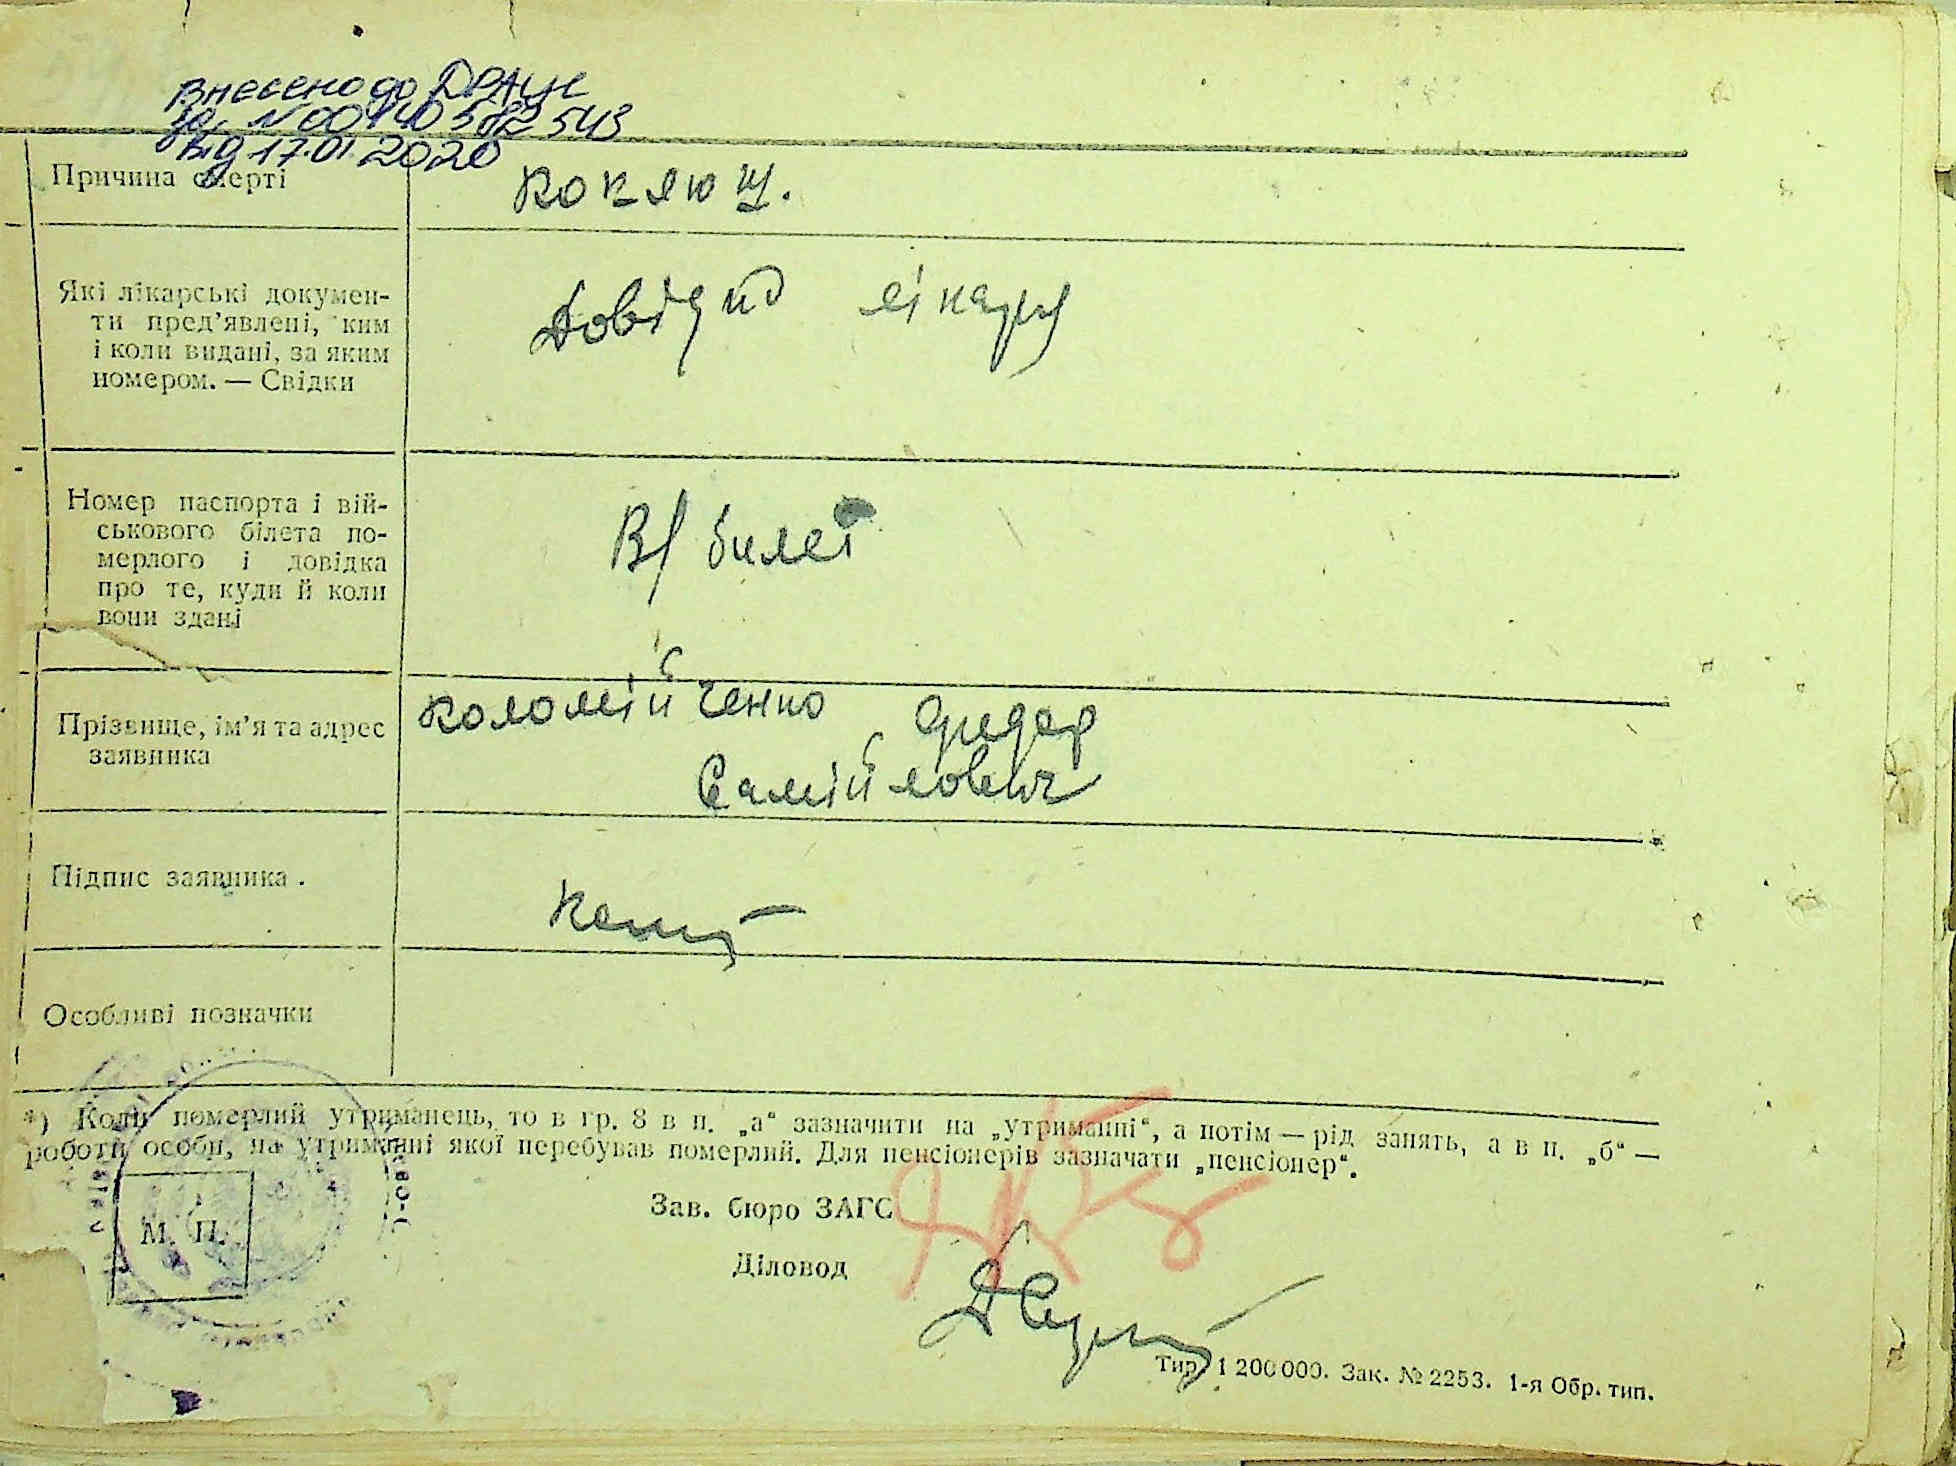 Внесено до ДРАЦС
за N 00140582543
від 17.01.2020
Причина смерті
коклюш.
Які лікарські докумен-
ти пред’явлені, ким
і коли видані, за яким
номером. — Свідки
Довідка лікаря
Номер паспорта і вій-
ськового білета по-
мерлого і довідка
про те, куди й коли
вони здані
В/билет
Прізвище, ім’я та адрес
заявника
Коломійченко Федор
Самійлович
Підпис заявника.
Особливі позначки
*) Коли померлий утриманець, то в гр. 8 в п. „а“ зазначити на „утриманні“, а потім — рід занять, а в п. „б“ —
роботи особи, на утриманні якої перебував померлий. Для пенсіонерів зазначати „пенсіонер“.
М. П.
Зав. бюро ЗАГС
Діловод
Тир. 1 200 000. Зак. № 2253. 1-я Обр. тип.